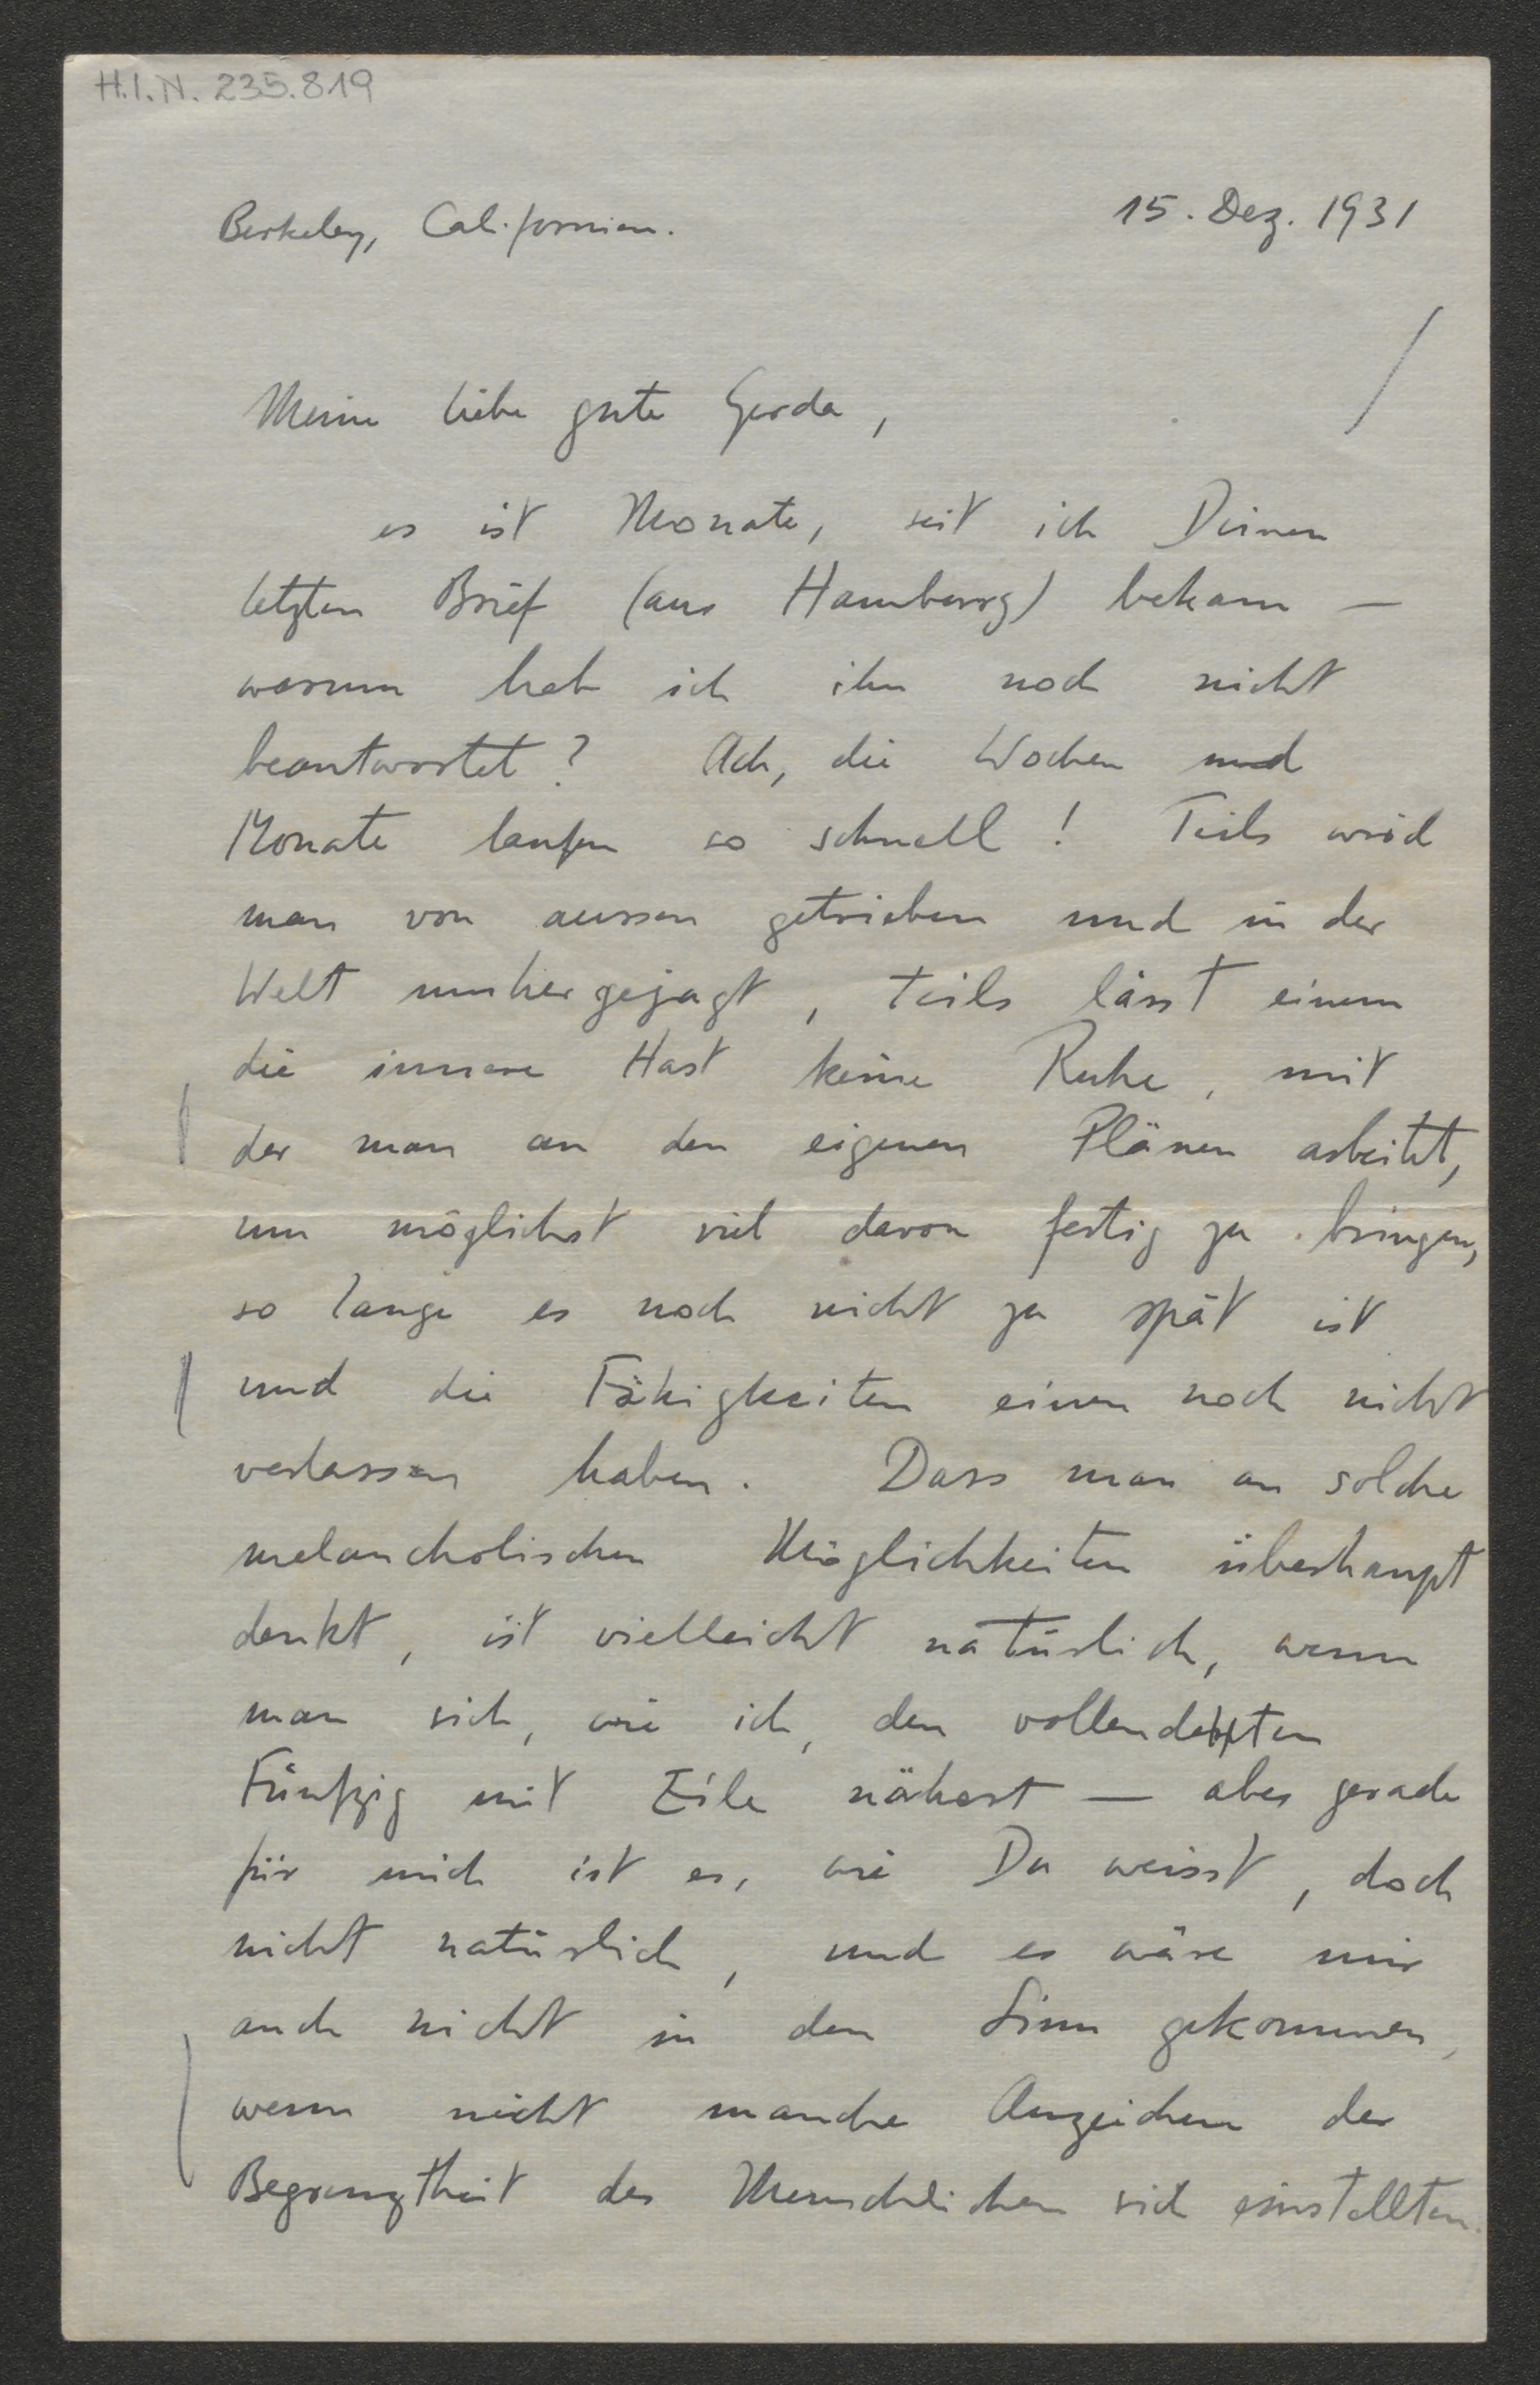 H.I.N. 235.819
Berkeley, Californien.
15. Dez. 1931
Meine liebe gute Gerda,
es ist Monate, seit ich Deinen
letzten Brief (aus Hamburg) bekam —
warum hab ich ihn noch nicht
beantwortet? Ach, die Wochen und
Monate laufen so schnell! Teils wird
man von aussen getrieben und in der
Welt umhergejagt, teils lässt einem
die innere Hast keine Ruhe, mit
der man an den eigenen Plänen arbeitet,
um möglichst viel davon fertig zu bringen,
so lange es noch nicht zu spät ist
und die Fähigkeiten einen noch nicht
verlassen haben. Dass man an solche
melancholischen Möglichkeiten überhaupt
denkt, ist vielleicht natürlich, wenn
man sich, wie ich, den vollendeten
Fünfzig mit Eile nähert — aber gerade
für mich ist es, wie Du weisst, doch
nicht natürlich, und es wäre mir
auch nicht in den Sinn gekommen,
wenn nicht manche Anzeichen der
Begrenztheit des Menschlichen sich einstellten.